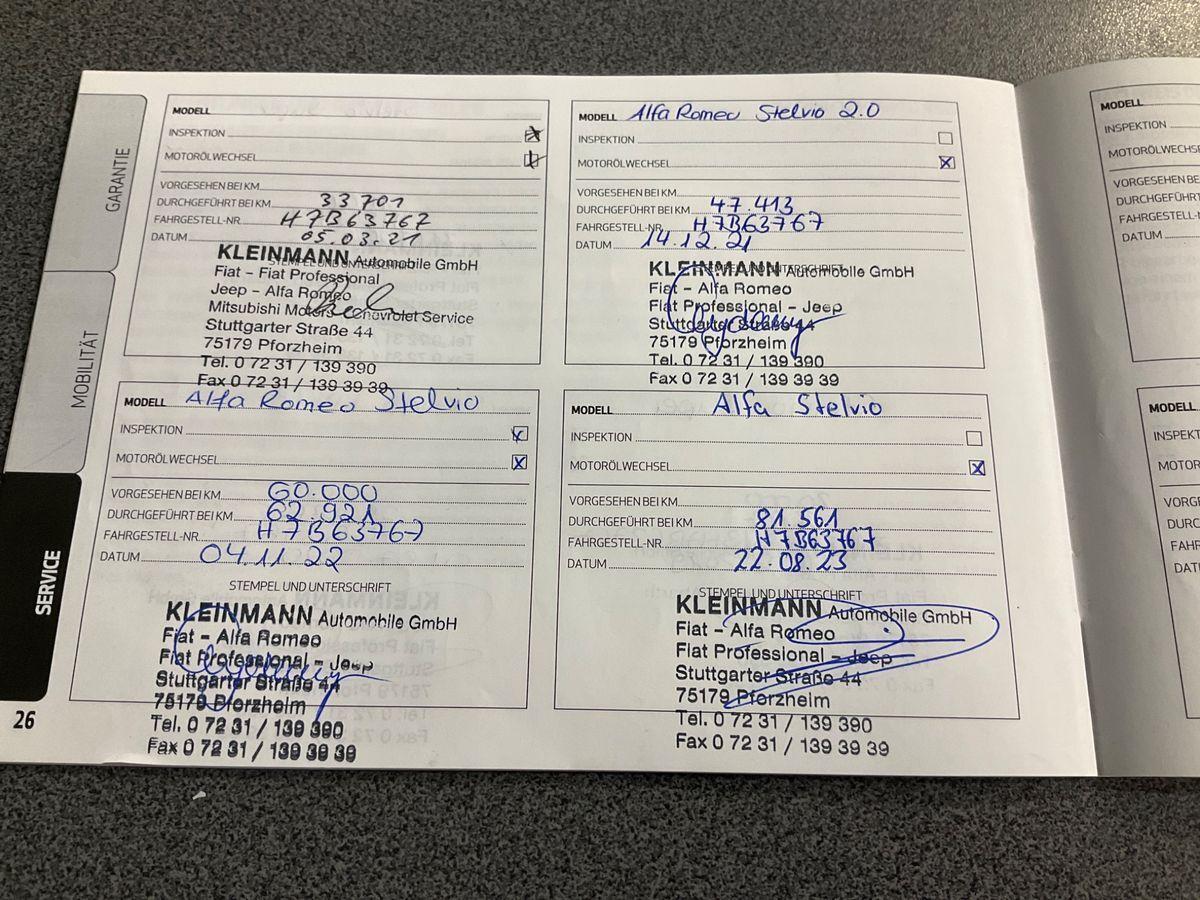 GARANTIE
MOBILITÄT
SERVICE
26
MODELL
INSPEKTION
MOTORÖLWECHSEL
VORGESEHEN BEI KM
DURCHGEFÜHRT BEI KM 33701
FAHRGESTELL-NR. H7B63767
DATUM 05.03.21
STEMPEL UND UNTERSCHRIFT
KLEINMANN Automobile GmbH
Fiat – Fiat Professional
Jeep – Alfa Romeo
Mitsubishi Motors Chevrolet Service
Stuttgarter Straße 44
75179 Pforzheim
Tel. 0 72 31 / 139 390
Fax 0 72 31 / 139 39 39
MODELL Alfa Romeo Stelvio 2.0
INSPEKTION
MOTORÖLWECHSEL
VORGESEHEN BEI KM
DURCHGEFÜHRT BEI KM 47.413
FAHRGESTELL-NR. H7B63767
DATUM 14.12.21
STEMPEL UND UNTERSCHRIFT
KLEINMANN Automobile GmbH
Fiat – Alfa Romeo
Fiat Professional – Jeep
Stuttgarter Straße 44
75179 Pforzheim
Tel. 0 72 31 / 139 390
Fax 0 72 31 / 139 39 39
MODELL Alfa Romeo Stelvio
INSPEKTION
MOTORÖLWECHSEL
VORGESEHEN BEI KM 60.000
DURCHGEFÜHRT BEI KM 62.921
FAHRGESTELL-NR. H7B63767
DATUM 04.11.22
STEMPEL UND UNTERSCHRIFT
KLEINMANN Automobile GmbH
Fiat – Alfa Romeo
Fiat Professional – Jeep
Stuttgarter Straße 44
75179 Pforzheim
Tel. 0 72 31 / 139 390
Fax 0 72 31 / 139 39 39
MODELL Alfa Stelvio
INSPEKTION
MOTORÖLWECHSEL
VORGESEHEN BEI KM
DURCHGEFÜHRT BEI KM 81.561
FAHRGESTELL-NR. H7B63767
DATUM 22.08.23
STEMPEL UND UNTERSCHRIFT
KLEINMANN Automobile GmbH
Fiat – Alfa Romeo
Fiat Professional – Jeep
Stuttgarter Straße 44
75179 Pforzheim
Tel. 0 72 31 / 139 390
Fax 0 72 31 / 139 39 39
MODELL
INSPEKTION
MOTORÖLWECHSE
VORGESEHEN BE
DURCHGEFÜHRT
FAHRGESTELL-N
DATUM
MODELL
INSPEKT
MOTOR
VORG
DURC
FAHR
DAT